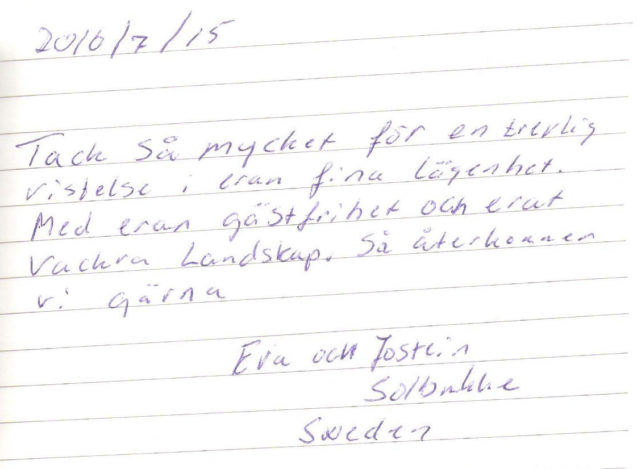 2016/7/15
Tack så mycket för en trevlig
vistelse i eran fina lägenhet.
Med eran gästfrihet och erat
vackra Landskap. Så återkommer
vi gärna
Eva och Jostein
Solbakke
Sweden